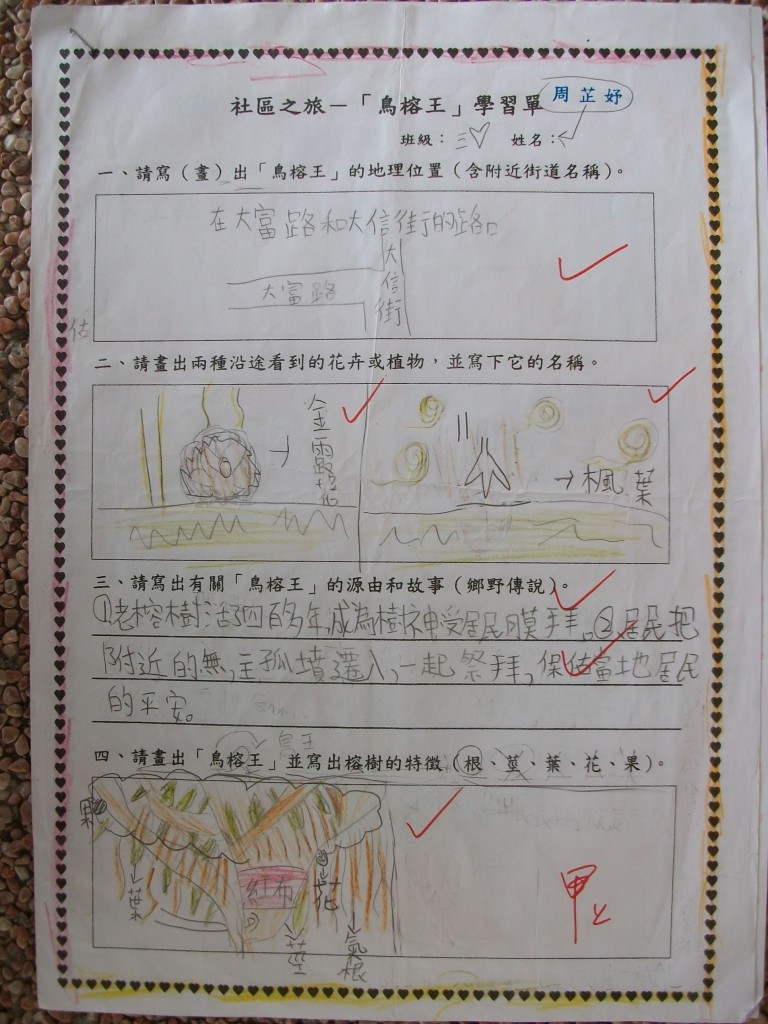 社區之旅－「鳥榕王」學習單 周芷妤
班級：三 姓名：
一、請寫（畫）出「鳥榕王」的地理位置（含附近街道名稱）。
在大富路和大信街的路口
大富路
大信街
估
二、請畫出兩種沿途看到的花卉或植物，並寫下它的名稱。
金露花
楓葉
三、請寫出有關「鳥榕王」的源由和故事（鄉野傳說）。
①老榕樹活了四百多年,成為樹神受居民膜拜。②居民把
附近的無,主孤墳遷入,一起祭拜,保佑當地居民
的平安。
四、請畫出「鳥榕王」並寫出榕樹的特徵（根、莖、葉、花、果）。
果
葉
紅布
花
莖
氣根
甲上